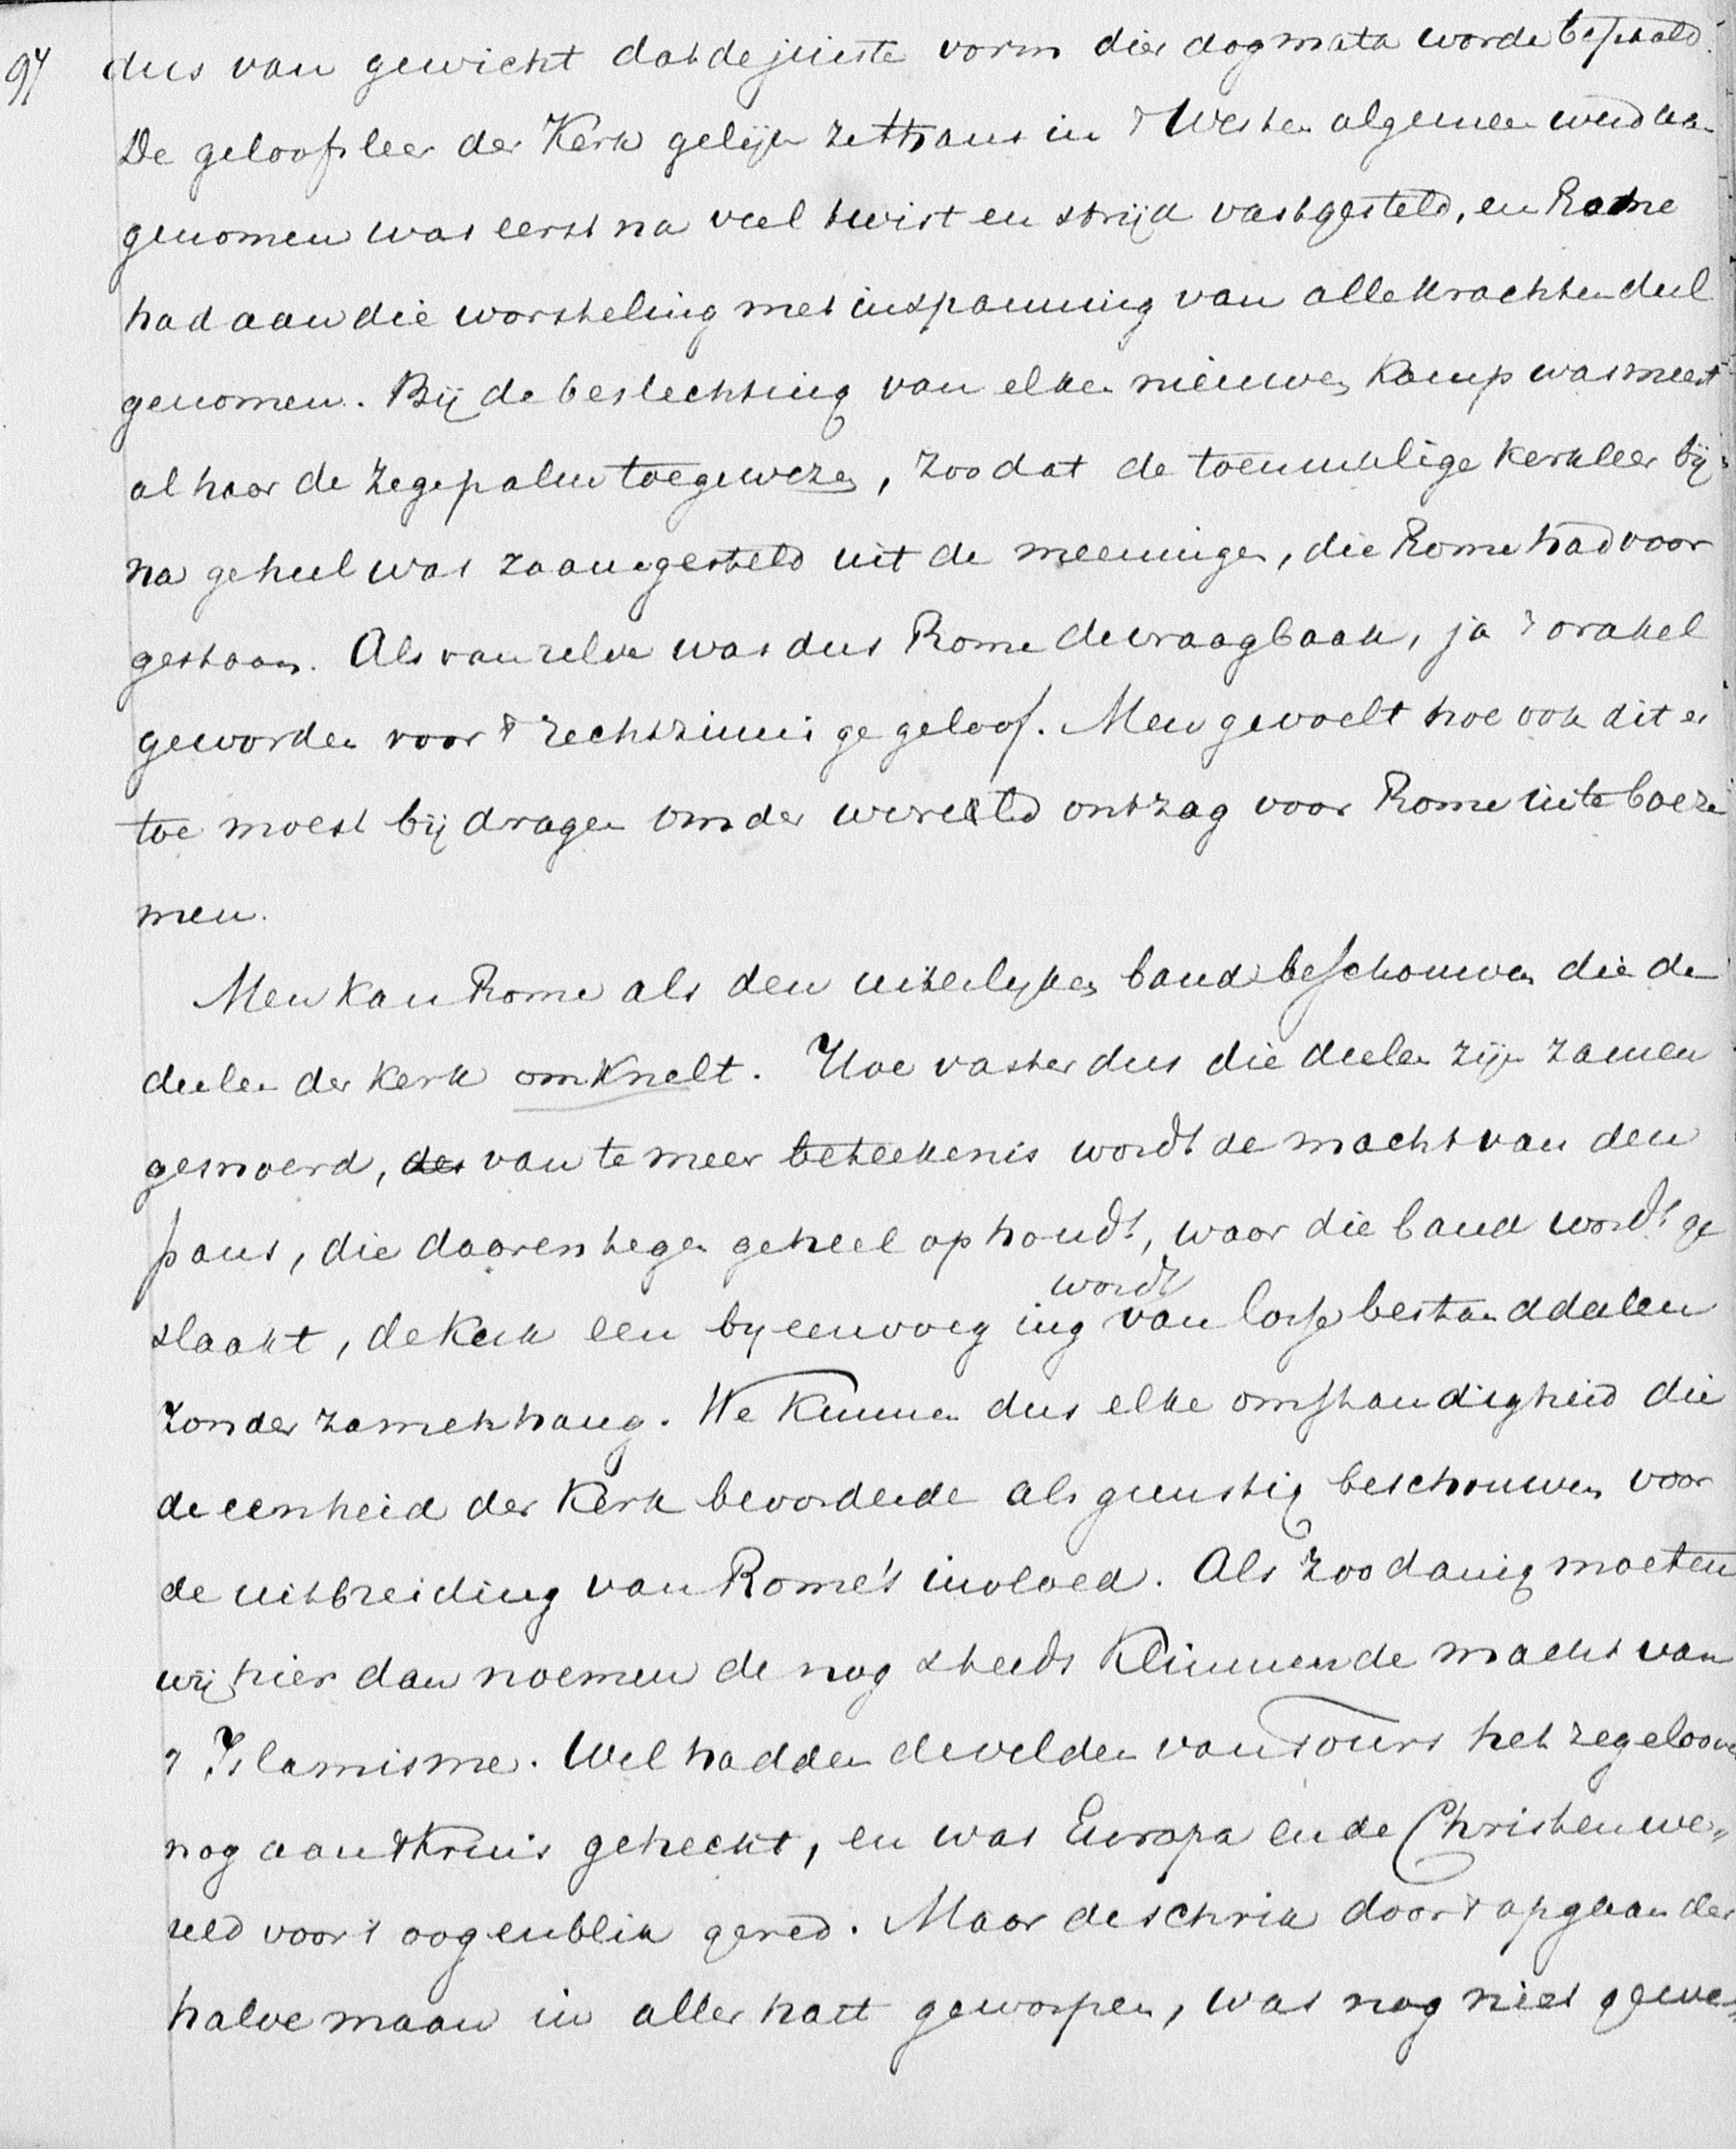 97
dus van gewicht dat de juiste vorm dier dogmata worde bepaald.
De geloofsleer der Kerk gelijk ze thans in 't Westen algemeen werd aan
genomen was eerst na veel twist en strijd vastgesteld, en Rome
had aan die worsteling met inspanning van alle krachten deel
genomen. Bij de beslechting van elken nieuwen Kamp was meest
al haar de zegepalm toegewezen, zoodat de toenmalige kerkleer bij
na geheel was zaamgesteld uit de meeningen, die Rome had voor
gestaan. Als van zelve was dus Rome de vraagbaak, ja 't orakel
geworden voor 't rechtzinnige geloof. Men gevoelt hoe ook dit er
toe moest bijdragen om der wereld ontzag voor Rome in te boeze
men.
Men kan Rome als den uiterlyken band beschouwen die de
deelen der kerk omknelt. Hoe vaster dus die deelen zijn zamen
gesnoerd, des van te meer beteekenis wordt de macht van den
paus, die daarentegen geheel ophoudt, waar die band wordt ge
slaakt, de Kerk een byeenvoeging wordt van losse bestanddeelen
zonder zamenhang. We Kunnen dus elke omstandigheid die
de eenheid der Kerk bevorderde als gunstig beschouwen voor
de uitbreiding van Rome's invloed. Als zoodanig moeten
wij hier dan noemen de nog steeds Klimmende macht van
't Islamisme. Wel hadden de velden van Tours het zegeloover
nog aan 't Kruis gehecht, en was Europa en de Christenwe„
reld voor 't oogenblik gered. Maar de schrik door 't opgaan der
halve maan in aller hart geworpen, was nog niet gewe„